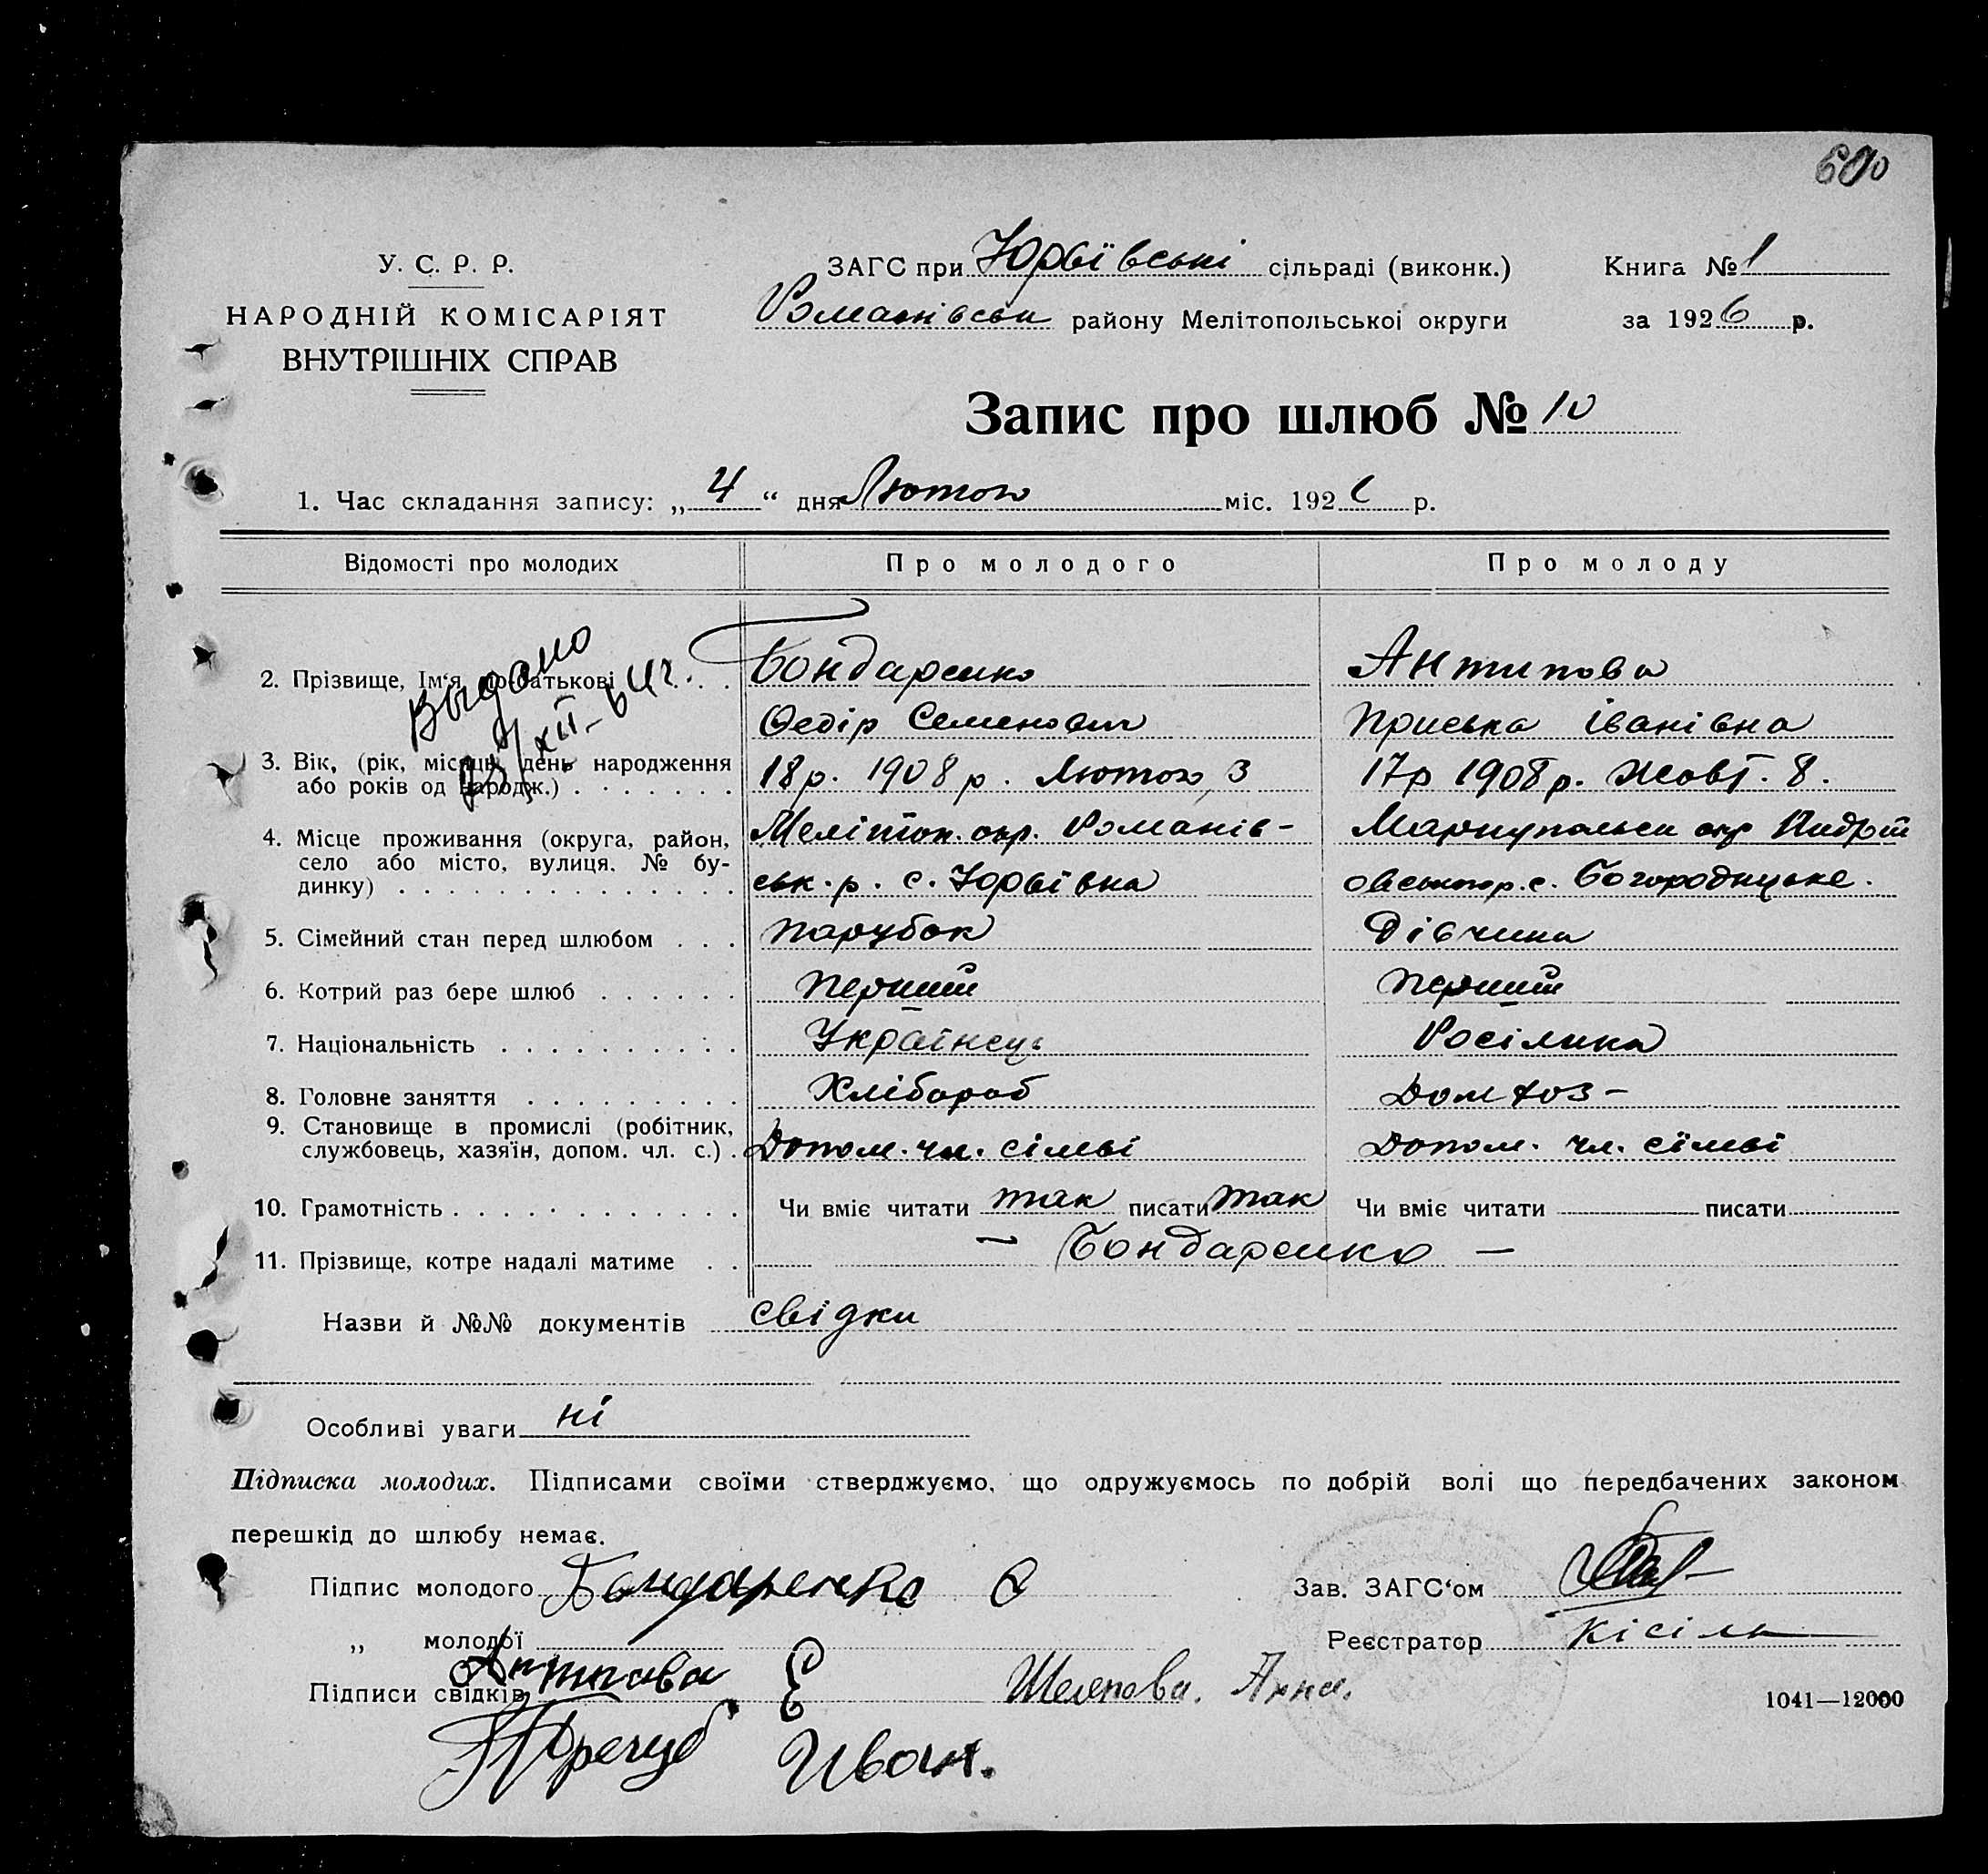 У. С. Р. Р.
НАРОДНІЙ КОМІСАРІЯТ
ВНУТРІШНІХ СПРАВ
ЗАГС при Юрьївські сільраді (виконк.) Книга № 1
Романівськ району Мелітопольської округи за 1926 р.
Запис про шлюб № 10
1. Час складання запису: „ 4 “ дня Лютого міс. 1926 р.
Відомості про молодих Про молодого Про молоду
Выдано
XII-64г.
2. Прізвище, Ім‘я, по-батькові . . . . Бондаренко Антипова
Федір Семенович Приська Іванівна
3. Вік, (рік, місяць, день народження
або років од народж.) . . . . . . . 18 р. 1908 р. Лютого 3 17 р 1908 р. Жовт. 8.
4. Місце проживання (округа, район, Меліпоп. окр. Романів- Мариупольськ окр
село або місто, вулиця. № бу-
динку) . . . . . . . . . . . . . . ськ. р. с. Юрьівка с. Богородицьке.
5. Сімейний стан перед шлюбом . . . парубок Дівчина
6. Котрий раз бере шлюб . . . . . . перший перший
7. Національність . . . . . . . . . . Українець Росіянка
8. Головне заняття . . . . . . . . . Хлібороб Дом хоз-
9. Становище в промислі (робітник,
службовець, хазяїн, допом. чл. с.) . Допом. чл. сімьі Допом. чл. сімьі
10. Грамотність . . . . . . . . . . . . Чи вміє читати так писати так Чи вміє читати писати
11. Прізвище, котре надалі матиме . . — Бондаренко —
Назви й №№ документів свідки
Особливі уваги ні
Підписка молодих. Підписами своїми стверджуємо, що одружуємось по добрій волі що передбачених законом
перешкід до шлюбу немає.
Підпис молодого Бондаренко Зав. ЗАГС‘ом
„ молодої Реєстратор Кісіль
Антипова Е
Підписи свідків Анна. 1041—12000
Иван.